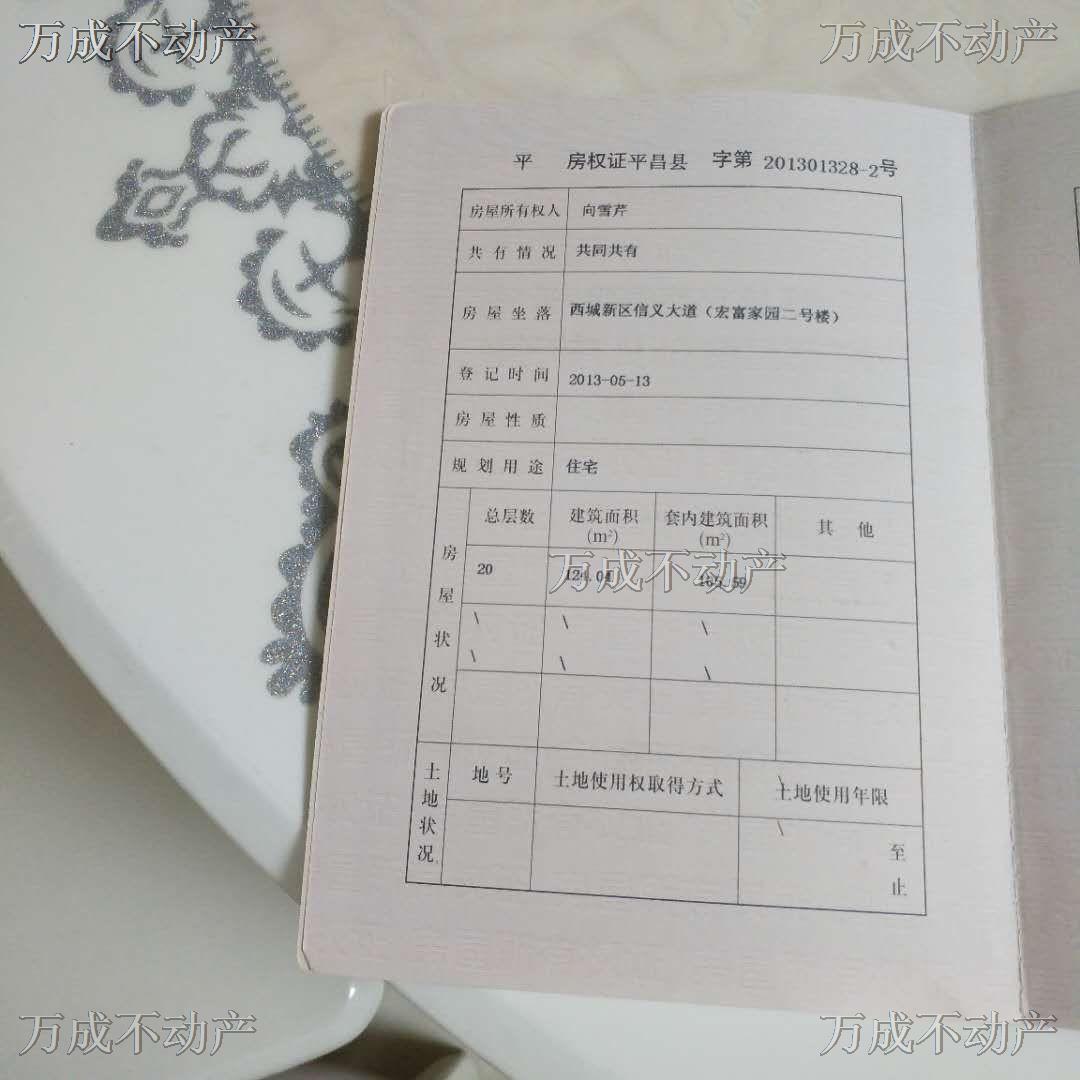 万成不动产 万成不动产
平 房权证平昌县 字第 201301328-2号
房屋所有权人 向雪芹
共有情况 共同共有
房屋坐落 西城新区信义大道（宏富家园二号楼）
登记时间 2013-05-13
房屋性质
规划用途 住宅
房屋状况
总层数 建筑面积(m²) 套内建筑面积(m²) 其他
20
万成不动产
土地状况
地号 土地使用权取得方式 土地使用年限
至
止
万成不动产 万成不动产